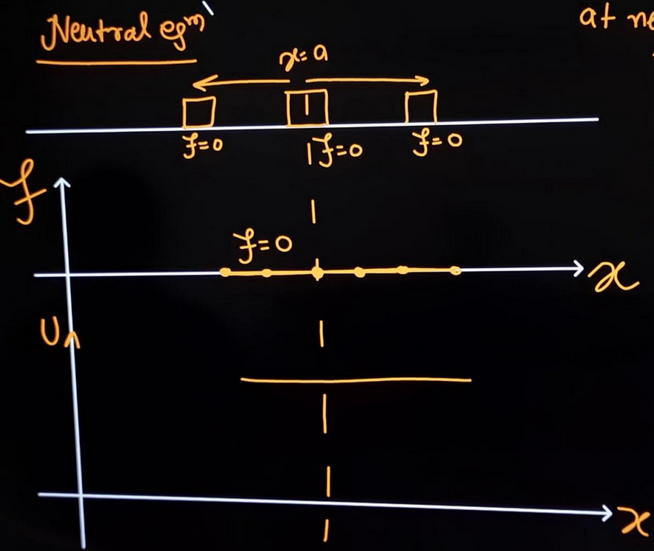 Neutral eqm
at ne
x=a
f=0
f=0
f=0
f
f=0
x
U
x